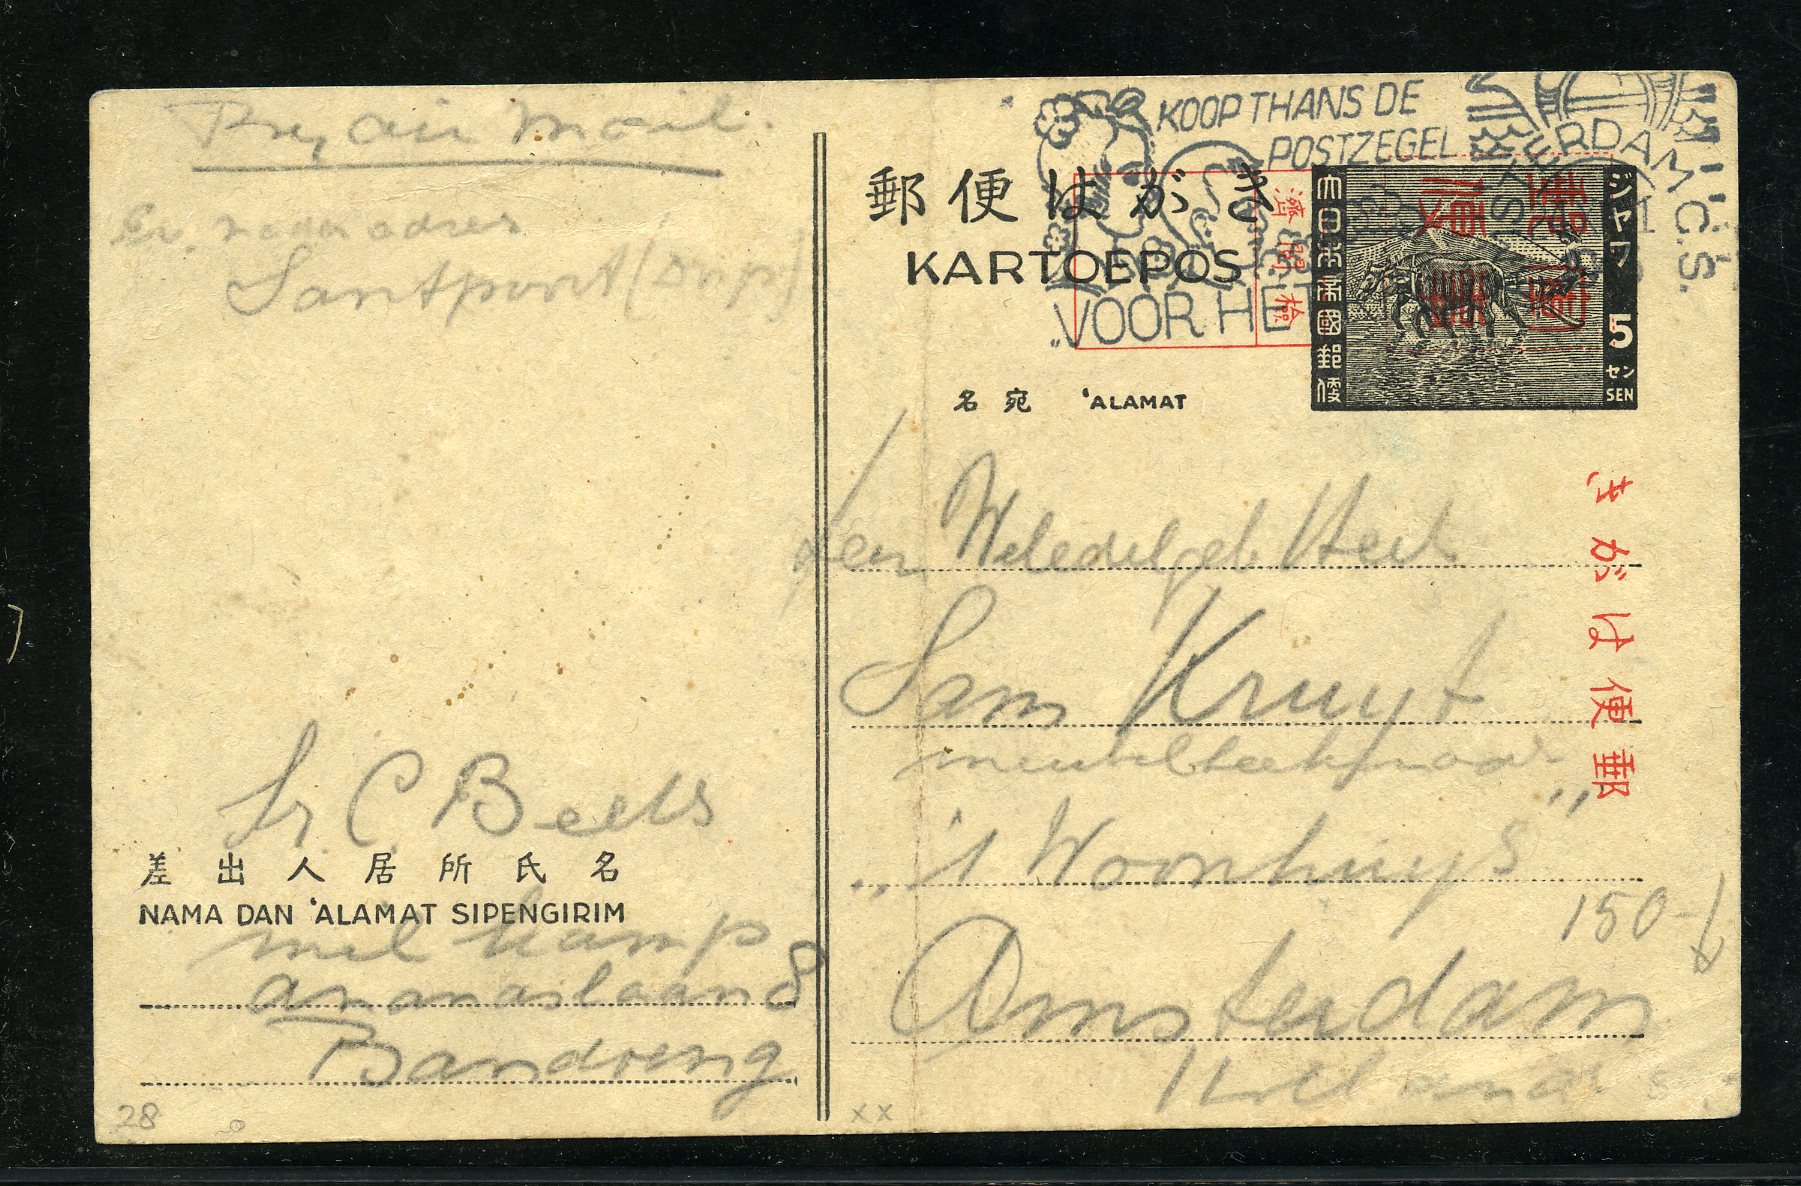 By air mail.
Santpoort (Dorp)
KOOP THANS DE
POSTZEGEL
„VOOR HET
郵便はがき
KARTOEPOS
大日本帝國郵便
ジャワ
5
セン
SEN
濟閲檢
名宛 'ALAMAT
郵便はがき
den Weledelgeb Heer
Sam Kruyt
meubelteekenaar
„'t Woonhuys"
Amsterdam
Holland
150-
C Beets
差出人居所氏名
NAMA DAN 'ALAMAT SIPENGIRIM
mil kamp
ananaslaan 8
Bandoeng
28
x x